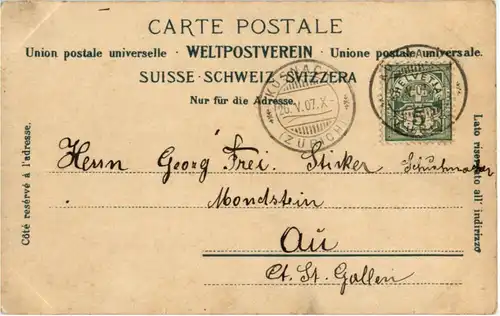 CARTE POSTALE
Union postale universelle · WELTPOSTVEREIN · Unione postale universale.
SUISSE · SCHWEIZ · SVIZZERA
Nur für die Adresse.
HELVETIA
5
V. 07. X
Côté resérvé à l'adresse.
Lato riservato all' indirizzo
Herrn Georg Frei. Sticker
Mondstein
Au
Ct. St. Gallen